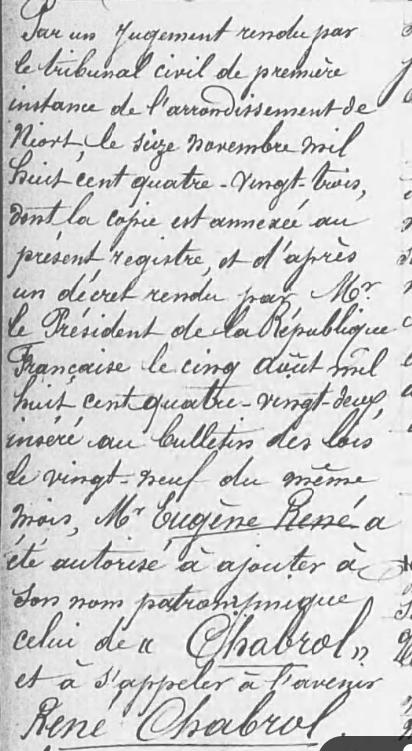 Par un jugement rendu par
le tribunal civil de première
instance de l'arrondissement de
Niort, le seize novembre mil
huit cent quatre-vingt-trois,
dont la copie est annexée au
présent registre, et d'après
un décret rendu par Mr.
le Président de la République
Française le cinq août mil
huit cent quatre-vingt-deux,
inséré au bulletin des lois
le vingt-neuf du même
mois, Mr Eugène René a
été autorisé à ajouter à
son nom patronymique
celui de « Chabrol »,
et à s'appeler à l'avenir
René Chabrol.